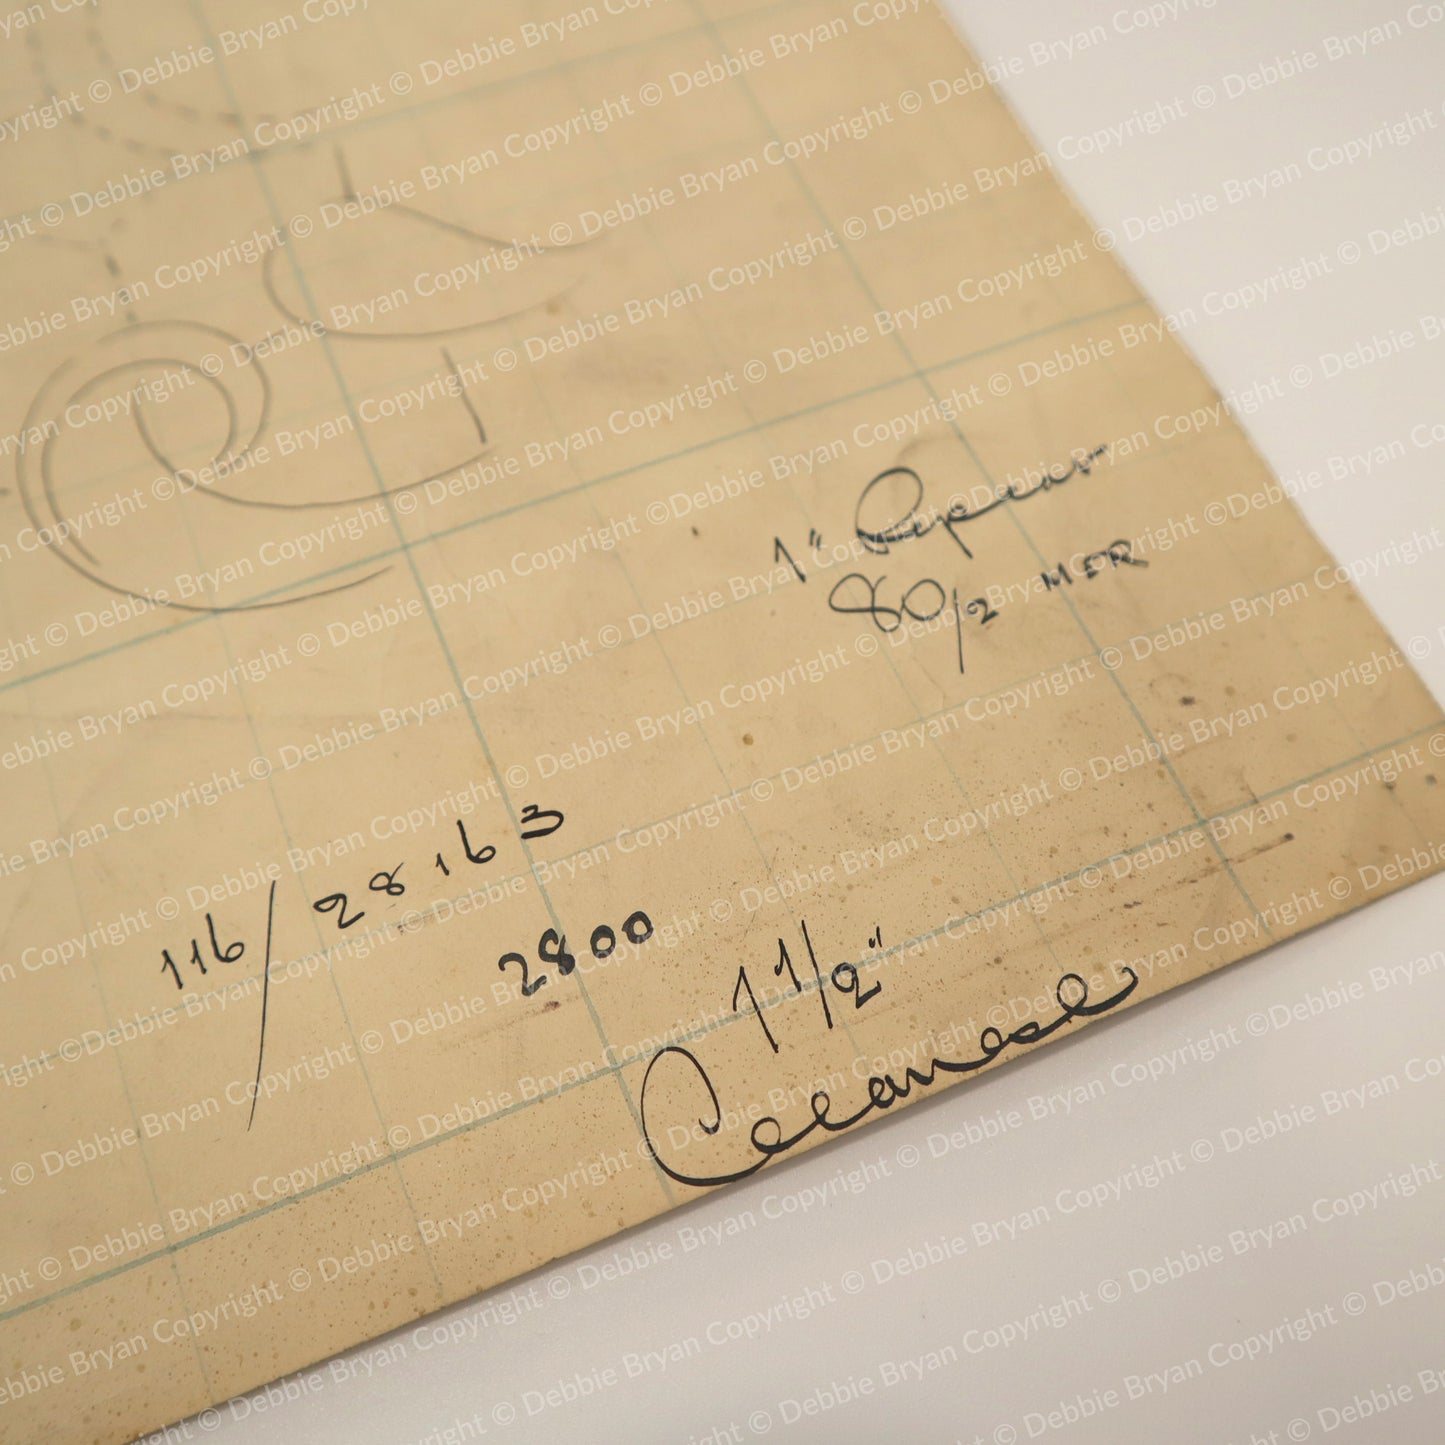 1" Repeat
80/2 MER
116/28163
2800
1 1/2"
Celanese
© Debbie Bryan Copyright © Debbie Bryan Copyright © Debbie Bryan Copyright